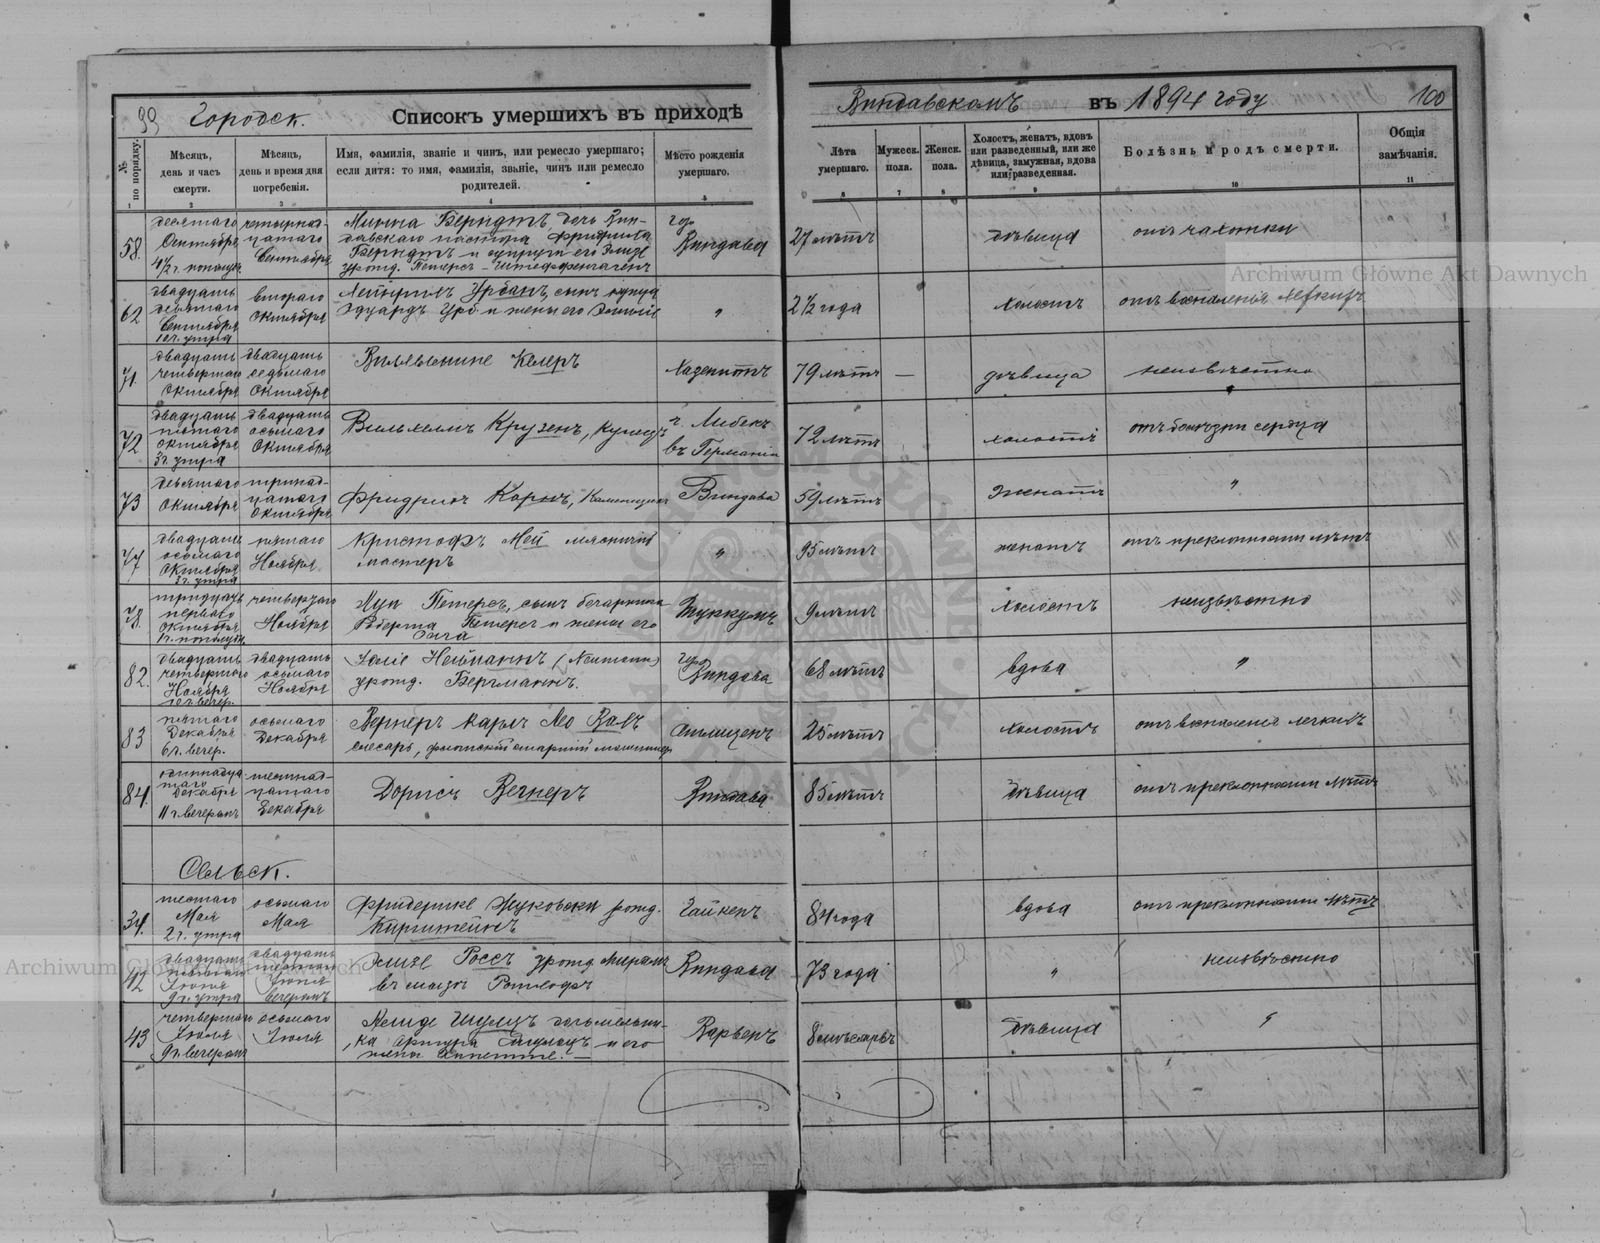 99 Городск. Списокъ умершихъ въ приходѣ Виндавскомъ въ 1894 году 100
№ по порядку.
Мѣсяцъ, день и часъ смерти.
Мѣсяцъ, день и время дня погребенія.
Имя, фамилія, званіе и чинъ, или ремесло умершаго; если дитя: то имя, фамилія, званіе, чинъ или ремесло родителей.
Мѣсто рожденія умершаго.
Лѣта умершаго.
Мужеск. пола.
Женск. пола.
Холостъ, женатъ, вдовъ или разведенный, или же дѣвица, замужная, вдова или разведенная.
Болѣзнь и родъ смерти.
Общія замѣчанія.
1 2 3 4 5 6 7 8 9 10 11
58. десятаго Сентября 4½ч. пополудн. четырнадцатаго Сентября Минна Берндтъ дочь Виндавскаго пастора Берндтъ и супруги его Элизе урожд. Петерсъ-Штеффенгагенъ гор. Виндава 27 лѣтъ дѣвица отъ чахотки
62 двадцать девятаго Сентября 10ч. утра втораго Октября Урбанъ, сынъ купца Эдуардъ Урб. и жены его Эмиліе " 2½ года холостъ отъ воспаленія легкихъ
71. двадцать четвертаго Октября двадцать седьмаго Октября Вильгельмине Келеръ Хазенпотъ 79 лѣтъ — дѣвица неизвѣстно
72 двадцать пятаго Октября 3ч. утра двадцать осьмаго Октября Вильхельмъ Крузенъ, купецъ г. Любекъ въ Германіи 72 лѣтъ холостъ отъ болѣзни сердца
73 девятаго Октября тринадцатаго Октября Фридрихъ Корнъ, Виндава 59 лѣтъ женатъ "
77 двадцать осьмаго Октября 3ч. утра пятаго Ноября Кристофъ Мей мясничій мастеръ " 95 лѣтъ женатъ отъ преклонности лѣтъ
78. тридцать перваго Октября 1ч. пополудн. четвертаго Ноября Петерсъ, сынъ Роберта Петерсъ и жены его Туккумъ 9 лѣтъ холостъ неизвѣстно
82. двадцать четвертаго Ноября 10ч. вечер. двадцать осьмаго Ноября Юліе Нейманнъ (Neumann) урожд. Бергманнъ. гор. Виндава 68 лѣтъ вдова "
83 пятаго Декабря 6ч. вечер. осьмаго Декабря Вернеръ Карлъ Лео слесарь, 25 лѣтъ холостъ отъ воспаленія легкихъ
84. одиннадцатаго Декабря 11ч. вечеромъ шестнадцатаго Декабря Дорисъ Вегнеръ Виндава 85 лѣтъ дѣвица отъ преклонности лѣтъ
Сельск.
34. шестаго Мая 2ч. утра осьмаго Мая Фридерике Жуковски рожд. Кирштейнъ 84 года вдова отъ преклонности лѣтъ
42 двадцать Іюня 9ч. утра двадцать Іюня вечеромъ Элизе Россъ урожд. Виндава 73 года " неизвѣстно
43 четвертаго Іюля 9ч. вечеромъ осьмаго Іюля Шульцъ дочь мельника Артура Шульцъ и его жены Аннетте. — Варвенъ 8 мѣсяцевъ дѣвица "
Archiwum Główne Akt Dawnych
Archiwum Główne Akt Dawnych